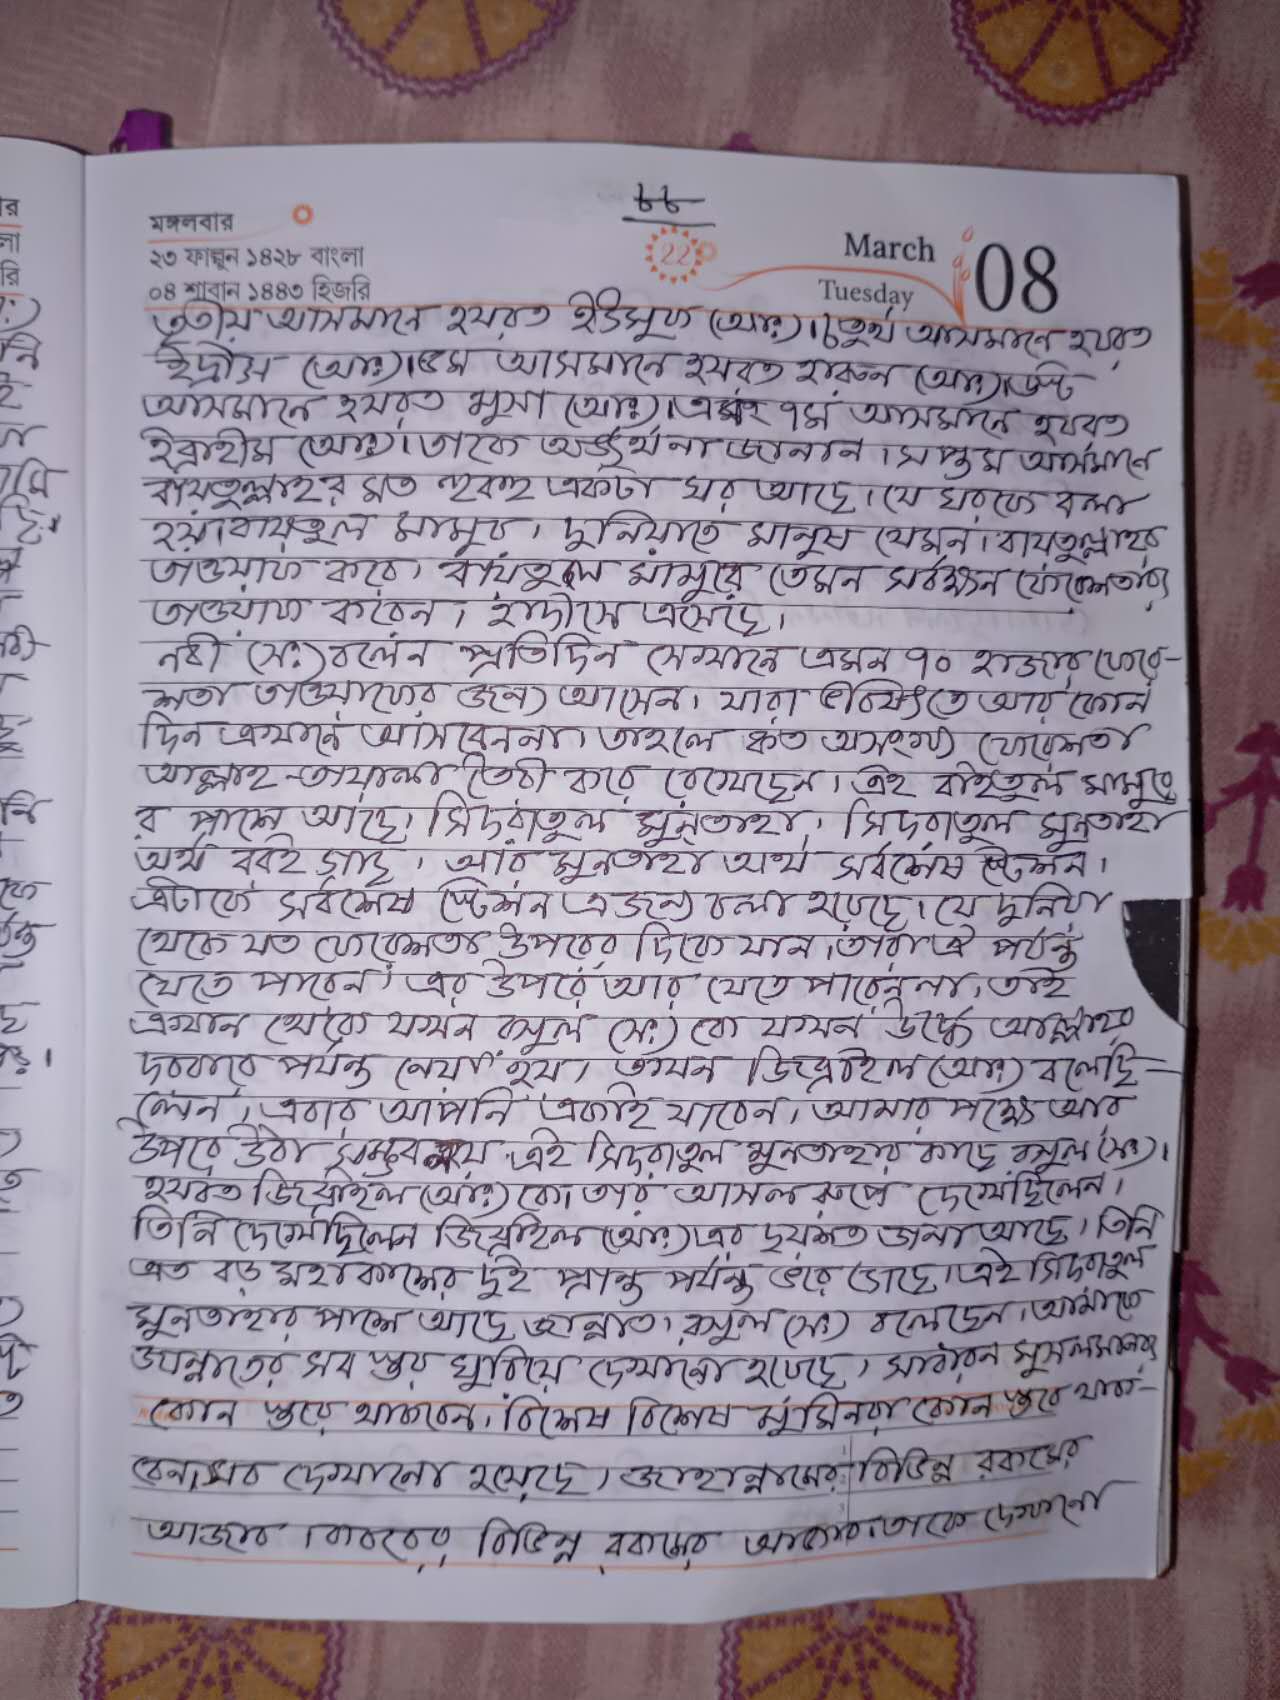 ৮৮
মঙ্গলবার
২৩ ফাল্গুন ১৪২৮ বাংলা
০৪ শাবান ১৪৪৩ হিজরি
22
March
Tuesday
08
তৃতীয় আসমানে হযরত ইউসুফ (আঃ)। চতুর্থ আসমানে হযরত
ইদ্রীস (আঃ)। ৫ম আসমানে হযরত হারুন (আঃ)। ৬ষ্ট
আসমানে হযরত মুসা (আঃ)। এবং ৭ম আসমানে হযরত
ইব্রাহীম (আঃ)। তাকে অভ্যর্থনা জানান। সপ্তম আসমানে
বায়তুল্লাহর মত হুবহু একটা ঘর আছে। যে ঘরকে বলা
হয়। বায়তুল মামুর। দুনিয়াতে মানুষ যেমন। বায়তুল্লাহর
তাওয়াফ করে। বায়তুল মামুরে তেমন সর্বক্ষন ফেরেশতারা
তাওয়াফ করেন। হাদীসে এসেছে।
নবী (সঃ) বলেন প্রতিদিন সেখানে এমন ৭০ হাজার ফেরে-
শতা তাওয়াফের জন্য আসেন। যারা ভবিষ্যতে আর কোন
দিন এখানে আসবেননা। তাহলে কত অসংখ্য ফেরেশতা
আল্লাহ তায়ালা তৈরী করে রেখেছেন। এই বাইতুল মামুরে
র পাশে আছে। সিদরাতুল মুনতাহা। সিদরাতুল মুনতাহা
অর্থ বরই গাছ। আর মুনতাহা অর্থ সর্বশেষ স্টেশন।
এটাকে সর্বশেষ স্টেশন এজন্য বলা হয়েছে। যে দুনিয়া
থেকে যত ফেরেশতা উপরের দিকে যান। তারা ঐ পর্যন্ত
যেতে পারেন। এর উপরে আর যেতে পারেননা। তাই
এখান থেকে যখন রসুল (সঃ) কে যখন উর্দ্ধে আল্লাহর
দরবারে পর্যন্ত নেয়া হয়। তখন জিব্রাইল (আঃ) বলেছি-
লেন। এবার আপনি একাই যাবেন। আমার পক্ষে আর
উপরে উঠা সম্ভব নয়। এই সিদরাতুল মুনতাহার কাছে রসুল (সঃ)।
হযরত জিব্রাইল (আঃ) কে। তার আসল রুপে দেখেছিলেন।
তিনি দেখেছিলেন জিব্রাইল (আঃ) এর ছয়শত ডানা আছে। তিনি
এত বড় মহাকাশের দুই প্রান্ত পর্যন্ত ভরে গেছে। এই সিদরাতুল
মুনতাহার পাশে আছে জান্নাত। রসুল (সঃ) বলেছেন। আমাকে
জান্নাতের সব স্তর ঘুরিয়ে দেখানো হয়েছে। সাধারন মুসলমানরা
কোন স্তরে থাকবেন। বিশেষ বিশেষ মুমিনরা কোন স্তরে থাক-
বেন। সব দেখানো হয়েছে। জাহান্নামের বিভিন্ন রকমের
আজাব। কবরের বিভিন্ন রকমের আজাব। তাকে দেখানো